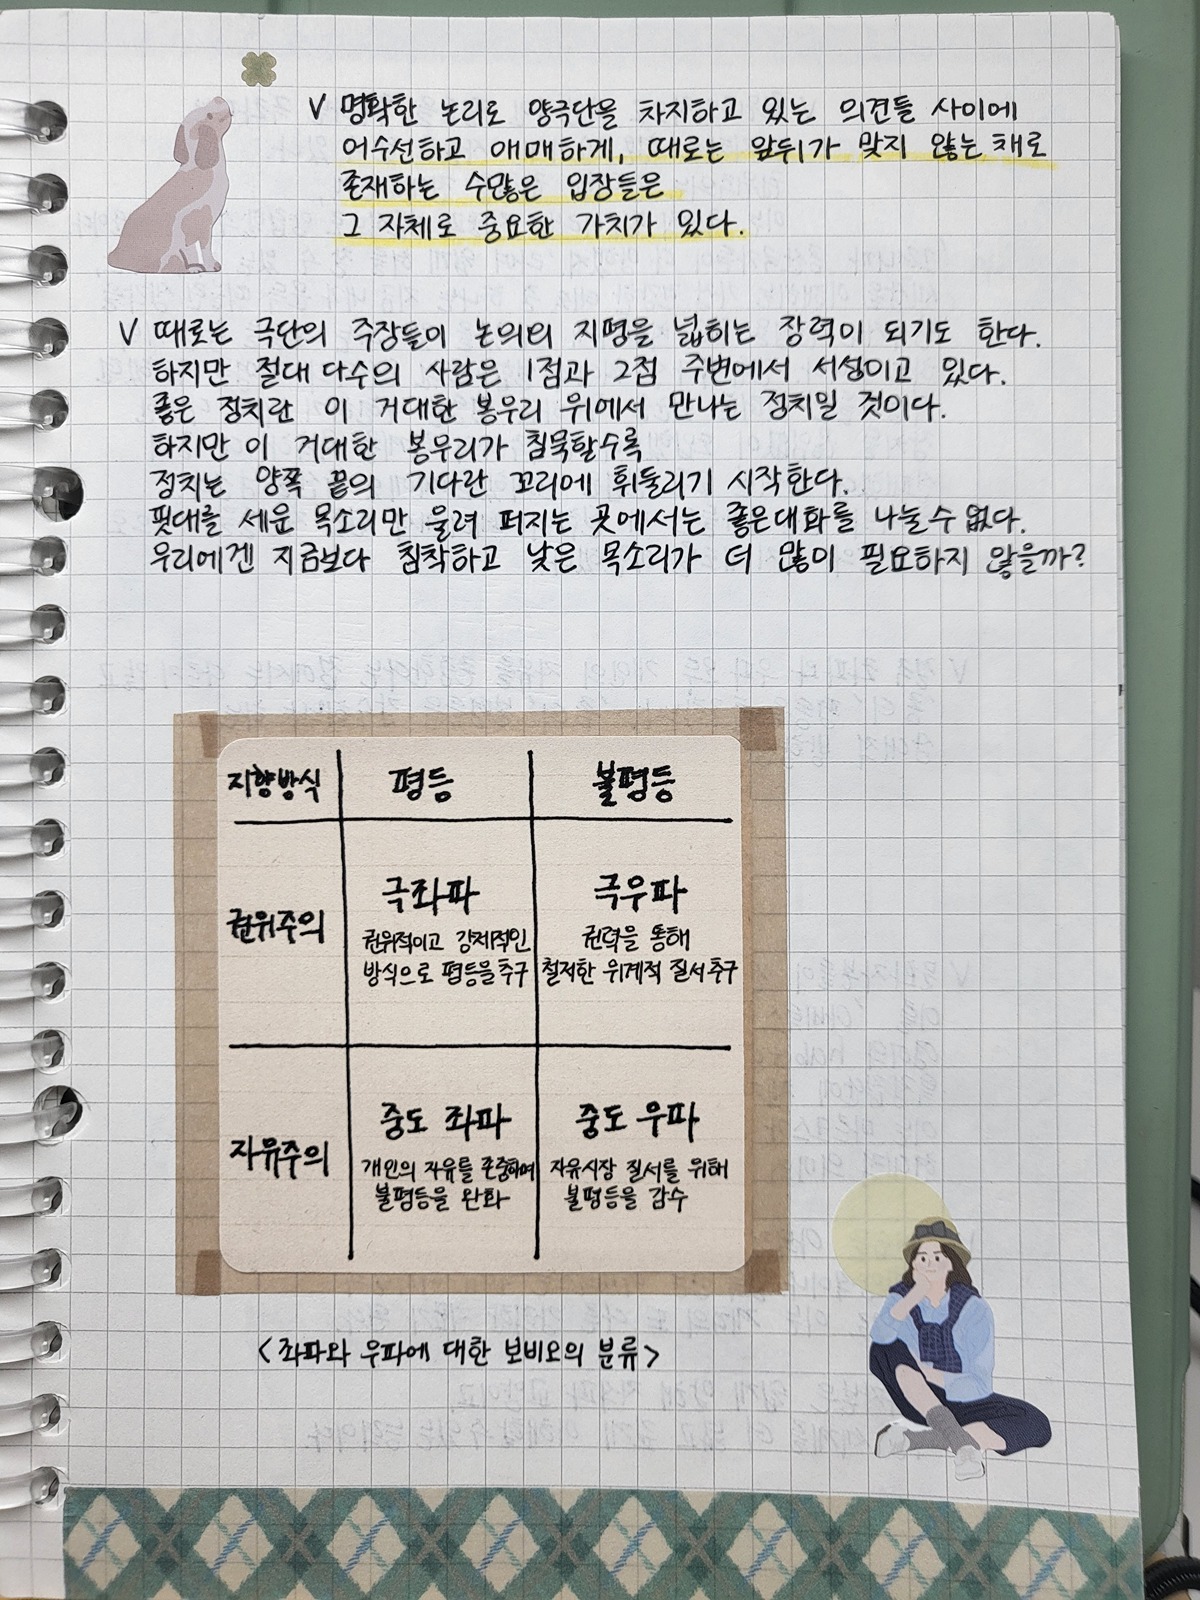 V 명확한 논리로 양극단을 차지하고 있는 의견들 사이에
어수선하고 애매하게, 때로는 앞뒤가 맞지 않는 채로
존재하는 수많은 입장들은
그 자체로 중요한 가치가 있다.
V 때로는 극단의 주장들이 논의의 지평을 넓히는 장력이 되기도 한다.
하지만 절대 다수의 사람은 1점과 2점 주변에서 서성이고 있다.
좋은 정치란 이 거대한 봉우리 위에서 만나는 정치일 것이다.
하지만 이 거대한 봉우리가 침묵할수록
정치는 양쪽 끝의 기다란 꼬리에 휘둘리기 시작한다.
핏대를 세운 목소리만 울려 퍼지는 곳에서는 좋은 대화를 나눌 수 없다.
우리에겐 지금보다 침착하고 낮은 목소리가 더 많이 필요하지 않을까?
지향방식 평등 불평등
권위주의
극좌파
권위적이고 강제적인
방식으로 평등을 추구
극우파
권력을 통해
철저한 위계적 질서 추구
자유주의
중도 좌파
개인의 자유를 존중하며
불평등을 완화
중도 우파
자유시장 질서를 위해
불평등을 감수
<좌파와 우파에 대한 보비오의 분류>